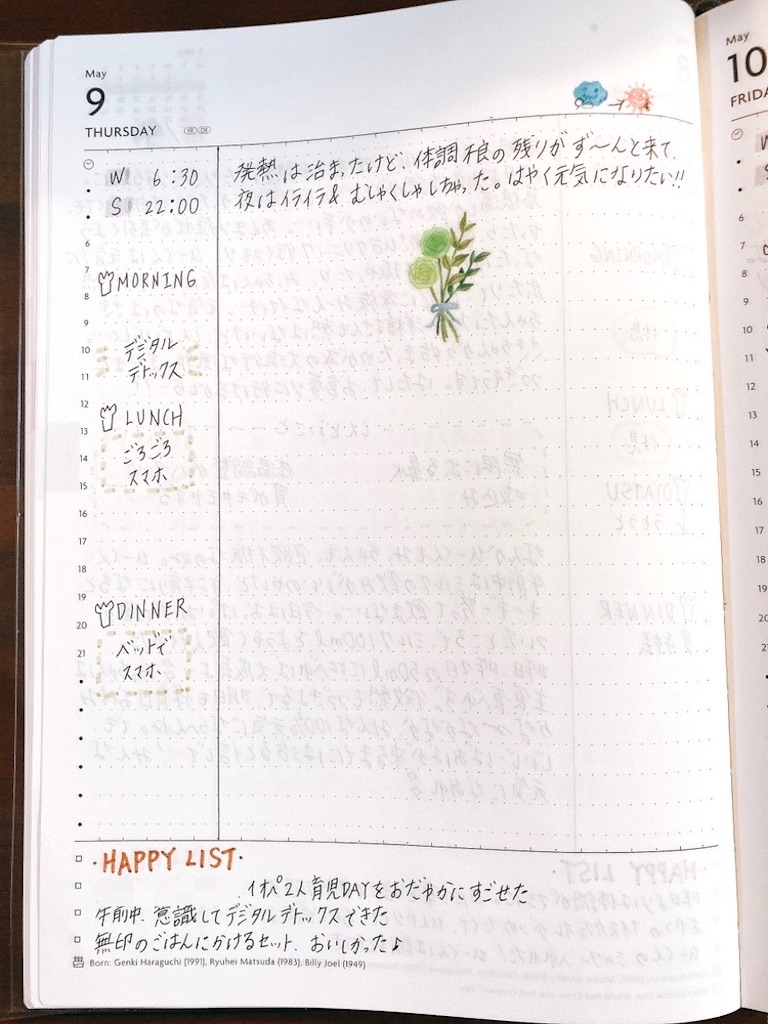 May
9
THURSDAY
FR DE
W 6:30
S 22:00
発熱は治まったけど、体調不良の残りがず〜んと来て、
夜はイライラ& むしゃくしゃしちゃった。はやく元気になりたい!!
6
7
MORNING
8
9
10
デジタル
デトックス
11
12
LUNCH
13
14
ごろごろ
スマホ
15
16
17
18
19
DINNER
20
21
ベッドで
スマホ
・HAPPY LIST・
イオペ2人育児DAYをおだやかにすごせた
午前中、意識してデジタルデトックスできた
無印のごはんにかけるセット、おいしかった♪
Born: Genki Haraguchi (1991), Ryuhei Matsuda (1983), Billy Joel (1949)
May
10
FRIDA
6
7
8
9
10
11
12
13
14
15
16
17
18
19
20
21